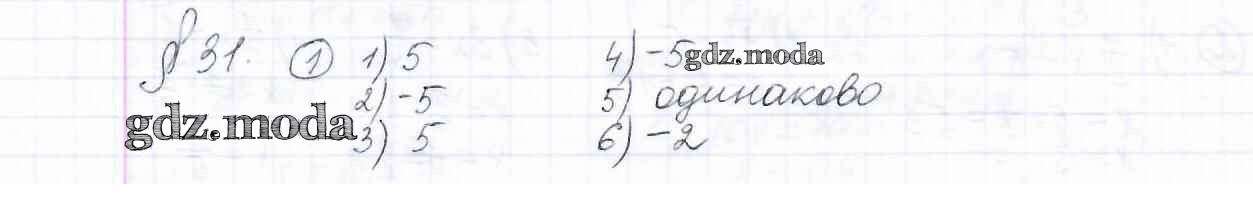 § 31. 1 1) 5 4) -5 gdz.moda
2) -5 5) одинаково
gdz.moda 3) 5 6) -2